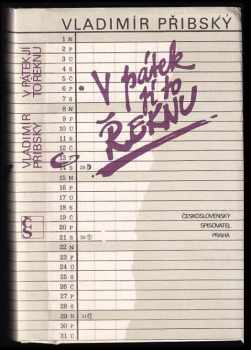 VLADIMÍR PŘIBSKÝ
V pátek
jí to
ŘEKNU
1 N
2 P
3 Ú
4 S
5 Č
6 P
7 S
8 N
9 P
10 Ú
11 S
12 Č
13 P
14 S
15 N
16 P
17 Ú
18 S
19 Č
20 P
21 S
22 N
23 P
24 Ú
25 S
26 Č
27 P
28 S
29 N
30 P
31 Ú
ČESKOSLOVENSKÝ
SPISOVATEL
PRAHA
V PÁTEK JÍ
TO ŘEKNU
VLADIMÍR
PŘIBSKÝ